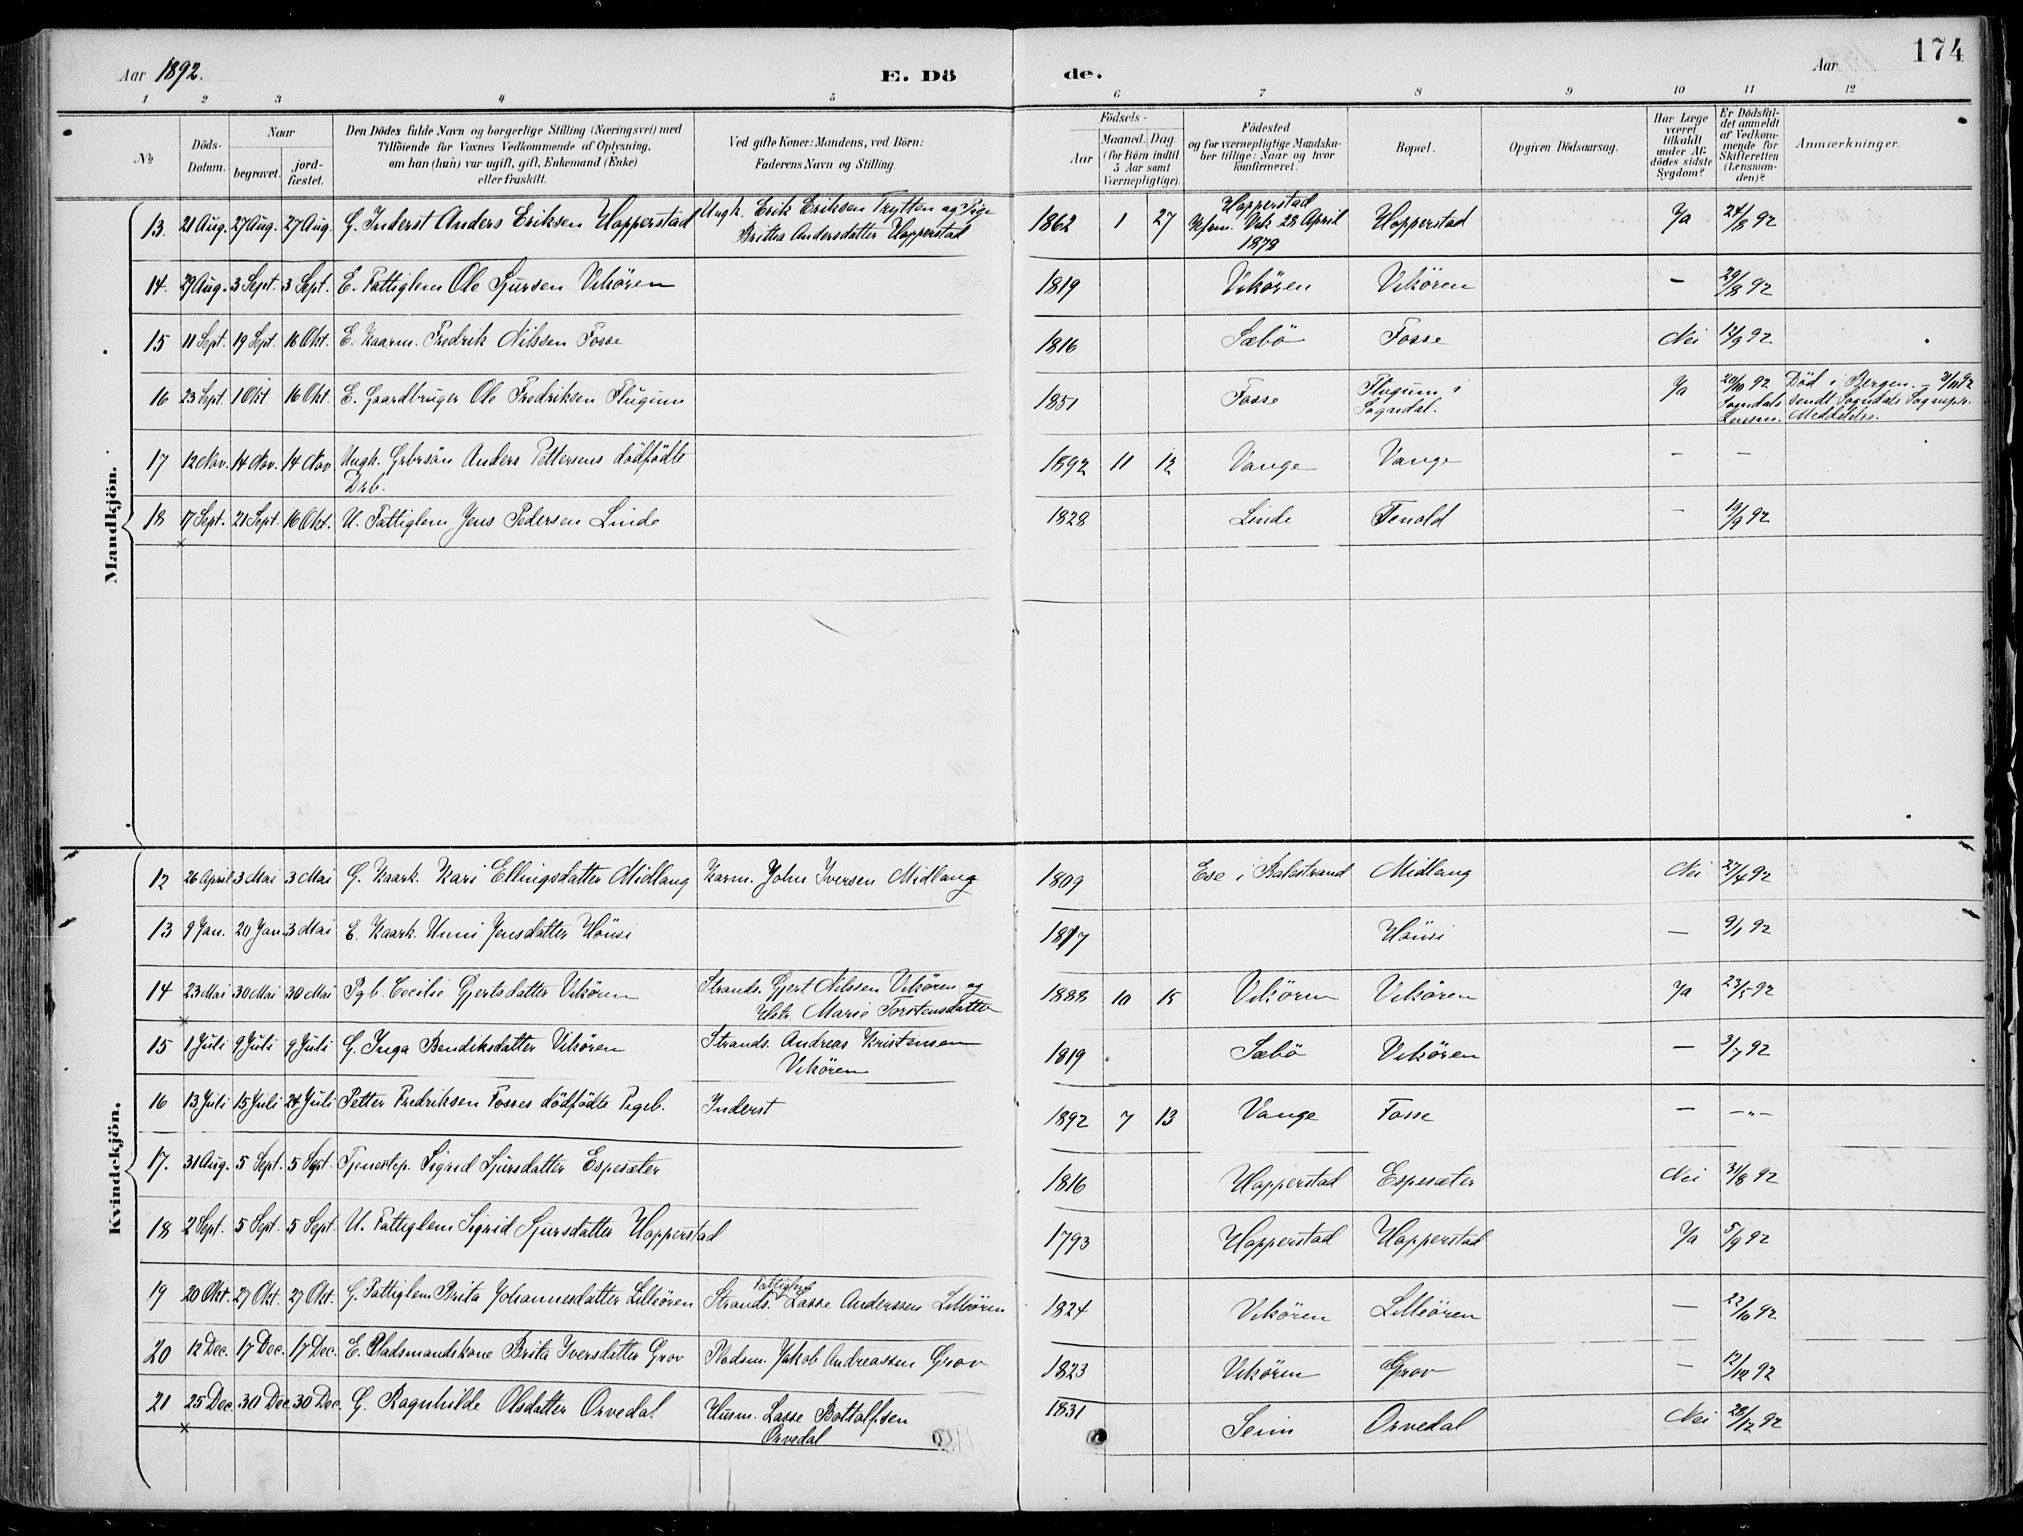 Aar 1892. E. Dö de. Aar 174
1 2 3 4 5 6 7 8 9 10 11 12
No
Döds-Datum.
Naar
begravet.
jord-fæstet.
Den Dödes fulde Navn og borgerlige Stilling (Næringsvei) med
Tilföiende for Voxnes Vedkommende af Oplysning,
om han (hun) var ugift, gift, Enkemand (Enke)
eller fraskilt.
Ved gifte Koner: Mandens, ved Börn:
Faderens Navn og Stilling.
Födsels-
Aar
Maaned. Dag
(for Börn indtil
5 Aar samt
Værnepligtige).
Födested
og for værnepligtige Mandska-
ber tillige: Naar og hvor
konfirmeret.
Bopæl.
Opgiven Dödsaarsag.
Har Læge
været
tilkaldt
under Af-
dödes sidste
Sygdom?
Er Dödsfal-
det anmeldt
af Vedkom-
mende for
Skifteretten
(Lensman-
den)?
Anmærkninger.
Mandkjön.
13. 21 Aug. 27 Aug. 27 Aug. G. Inderst Anders Eriksen Hopperstad Ungk. Erik Eriksen Trytten og Pige 1862 1 27 Hopperstad Hopperstad Ja 24/8 92
Brittha Andersdatter Hopperstad Kfrm. Vik 28 April
1878
14. 29 Aug. 3 Sept. 3 Sept. E. Fattiglem Ole Sjursen Vikören 1819 Vikören Vikören — 29/8 92
15 11 Sept. 19 Sept. 16 Okt. E. Kaarm. Fredrik Nilssen Fosse 1816 Sæbö Fosse Nei 12/9 92
16 23 Sept. 1 Okt. 16 Okt. E. Gaardbruger Ole Fredriksen Flugum 1851 Fosse Flugum i Ja 20/10 92 Död i Bergen. – 3/10 92
Sogndal. Sogndals sendt Sogndals Sognepr.
Lensm. Meddelelse.
17 12 Nov. 14 Nov. 14 Nov. Ungk. Grbrsön Anders Pettersens dödfödte 1892 11 12 Vange Vange — —
Drb.
18 17 Sept. 21 Sept. 16 Okt. U. Fattiglem Jens Pedersen Linde 1828 Linde Tenold — 19/9 92
Kvindekjön.
12 26 April 3 Mai 3 Mai G. Kaark. Kari Ellingsdatter Midlang Karm. John Iversen Midlang 1809 Ese i Balestrand Midlang Nei 27/4 92
13 9 Jan. 20 Jan. 3 Mai E. Kaark. Unni Jensdatter Hönsi 1817 Hönsi — 9/1 92
14 23 Mai 30 Mai 30 Mai Pgb. Cecilie Gjertsdatter Vikören Strands. Gjert Nilssen Vikören og 1888 10 15 Vikören Vikören Ja 23/5 92
Hstr. Marie Torstensdatter
15 1 Juli 9 Juli 9 Juli G. Inga Bendiksdatter Vikören Strands. Andreas Kristensen 1819 Sæbö Vikören — 3/7 92
Vikören
16 13 Juli 15 Juli 24 Juli Petter Fredriksen Fosses dödfödte Pigeb. Inderst 1892 7 13 Vange Fosse — —"—
17. 31 Aug. 5 Sept. 5 Sept. Tjenestep. Sigrid Sjursdatter Espesæter 1816 Hopperstad Espesæter Nei 31/8 92
18 2 Sept. 5 Sept. 5 Sept. U. Fattiglem Sigrid Sjursdatter Hopperstad 1793 Hopperstad Hopperstad Ja 5/9 92
19 20 Okt. 27 Okt. 27 Okt. G. Fattiglem Brita Johannesdatter Lilleören Strands. Fattiglem Lasse Anderssen Lilleören 1824 Vikören Lilleören — 22/10 92
20 12 Dec. 17 Dec. 17 Dec. E. Pladsmandskone Brita Iversdatter Grov Pladsm. Jakob Andreassen Grov 1823 Vikören Grov — 12/12 92
21 25 Dec. 30 Dec. 30 Dec. G. Ragnhilde Olsdatter Orvedal Husm. Lasse Bottolfsen 1831 Seim Orvedal Nei 28/12 92
Orvedal